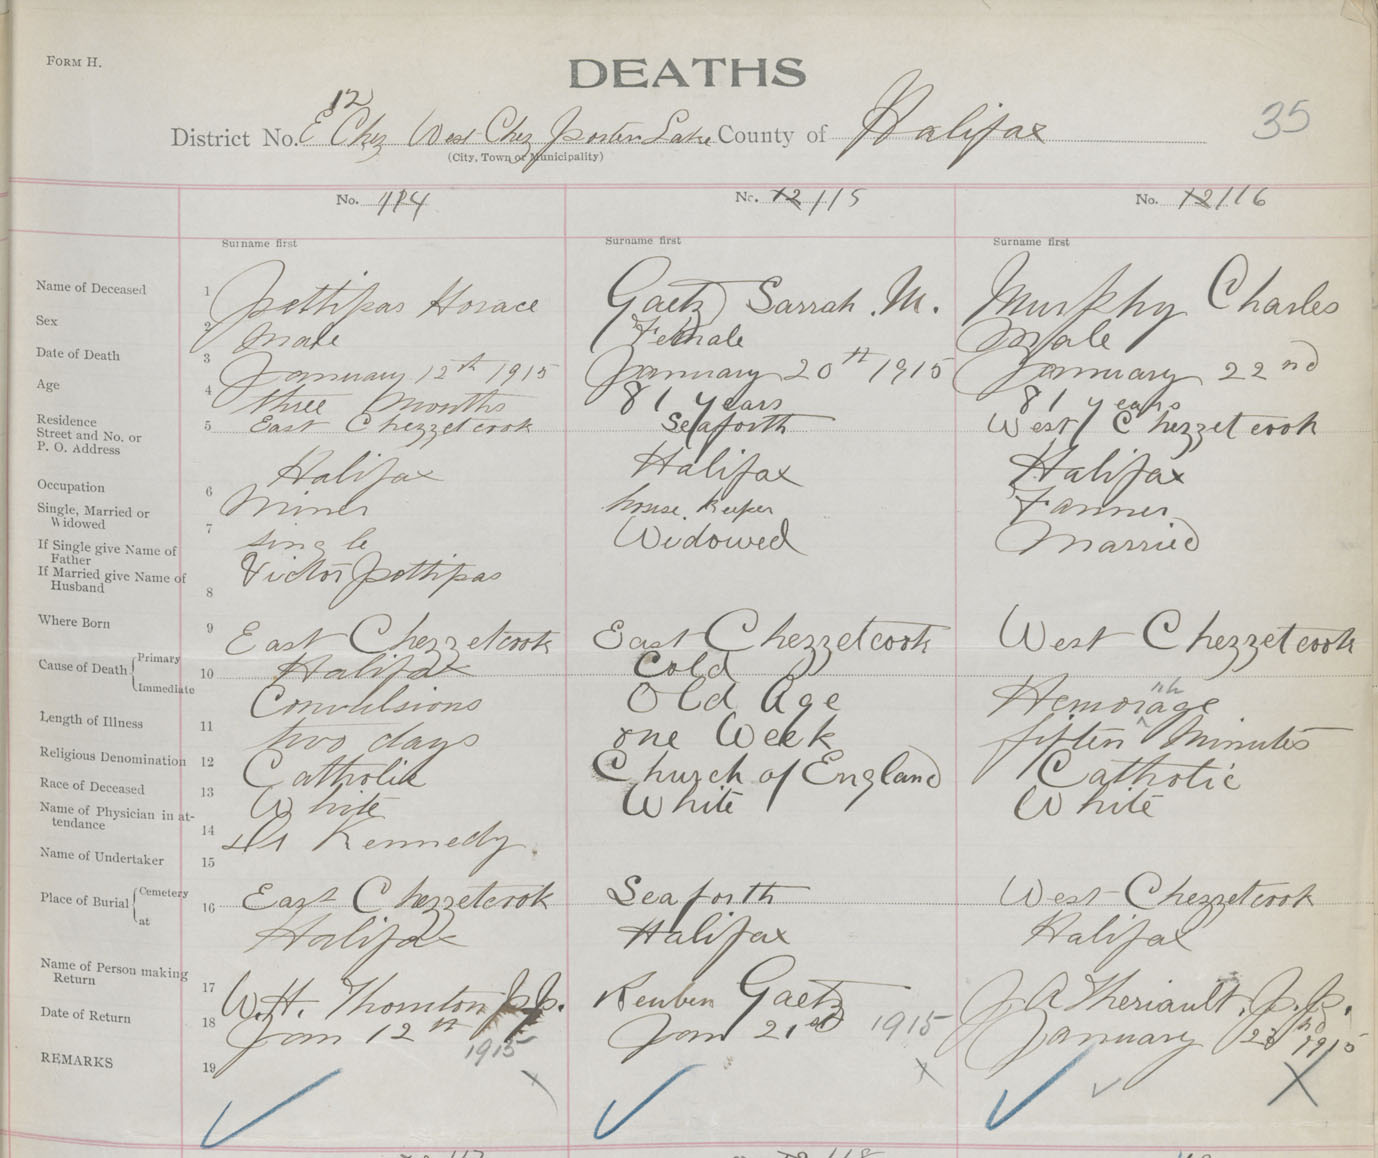 FORM H.
DEATHS
35
12
District No. E Chez West Chez Porters Lake County of Halifax
(City, Town or Municipality)
No. 114
No. 12 115
No. 12 116
Surname first
Surname first
Surname first
Name of Deceased 1 Pettipas Horace Gaetz Sarrah .M. Murphy Charles
Sex 2 Male Female Male
Date of Death 3 January 12th 1915 January 20th 1915 January 22nd
Age 4 three months 81 years 81 years
Residence 5 East Chezzetcook Seaforth West Chezzetcook
Street and No. or
P. O. Address Halifax Halifax Halifax
Occupation 6 Miner house keeper Farmer
Single, Married or
Widowed 7 single Widowed Married
If Single give Name of
Father Victor Pettipas
If Married give Name of
Husband 8
Where Born 9 East Chezzetcook East Chezzetcook West Chezzetcook
Cause of Death { Primary 10 Halifax Cold
Immediate Convulsions Old Age Hemorage
Length of Illness 11 two days one Week fiften Minutes
Religious Denomination 12 Catholic Church of England Catholic
Race of Deceased 13 White White White
Name of Physician in at-
tendance 14 Dr Kennedy
Name of Undertaker 15
Place of Burial { Cemetery 16 East Chezzetcook Seaforth West Chezzetcook
at Halifax Halifax Halifax
Name of Person making
Return 17 W.H. Thornton J.P. Reuben Gaetz J A Theriault, J.P.
Date of Return 18 Jan 12th 1915 Jan 21st 1915 January 23rd 1915
REMARKS 19